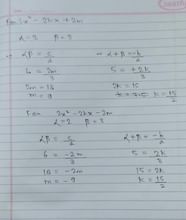 For 2x² - 2kx + 2m
α = 2 β = 3
αβ = c/a ⇒ α + β = -b/a
6 = 2m/3 5 = +2k/3
2m = 18 2k = 15
m = 9 k = 15/2
For 3x² - 2kx - 2m
α = 2 β = 3
αβ = c/a α + β = -b/a
6 = -2m/3 5 = 2k/3
18 = -2m 15 = 2k
m = -9 k = 15/2